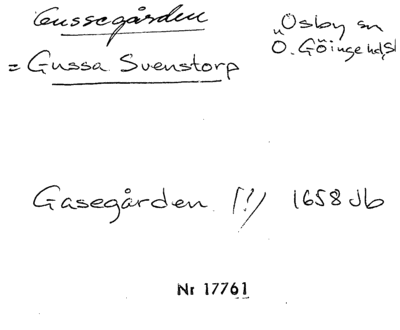 Gussegården
Osby sn
Ö. Göinge hd, Sk
= Gussa Svenstorp
Gasegården (?) 1658 Jb
Nr 17761